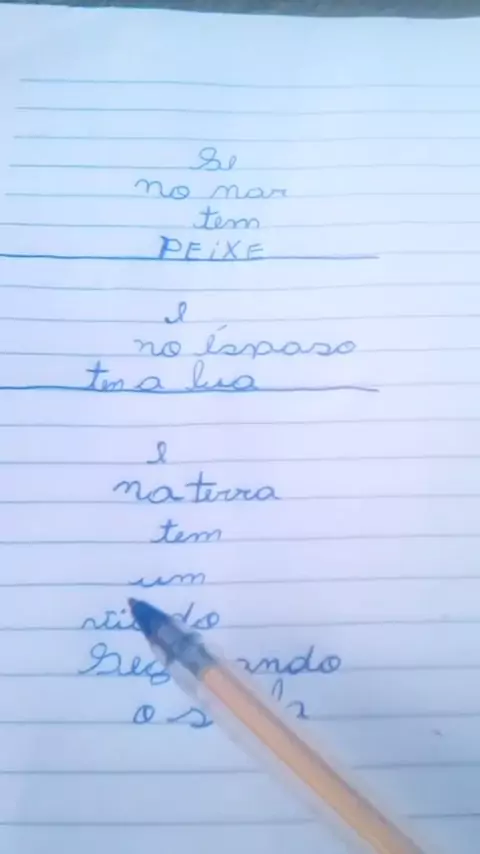 Se
no mar
tem
PEiXE
e
no éspaso
tem a lua
e
na terra
tem
um
o